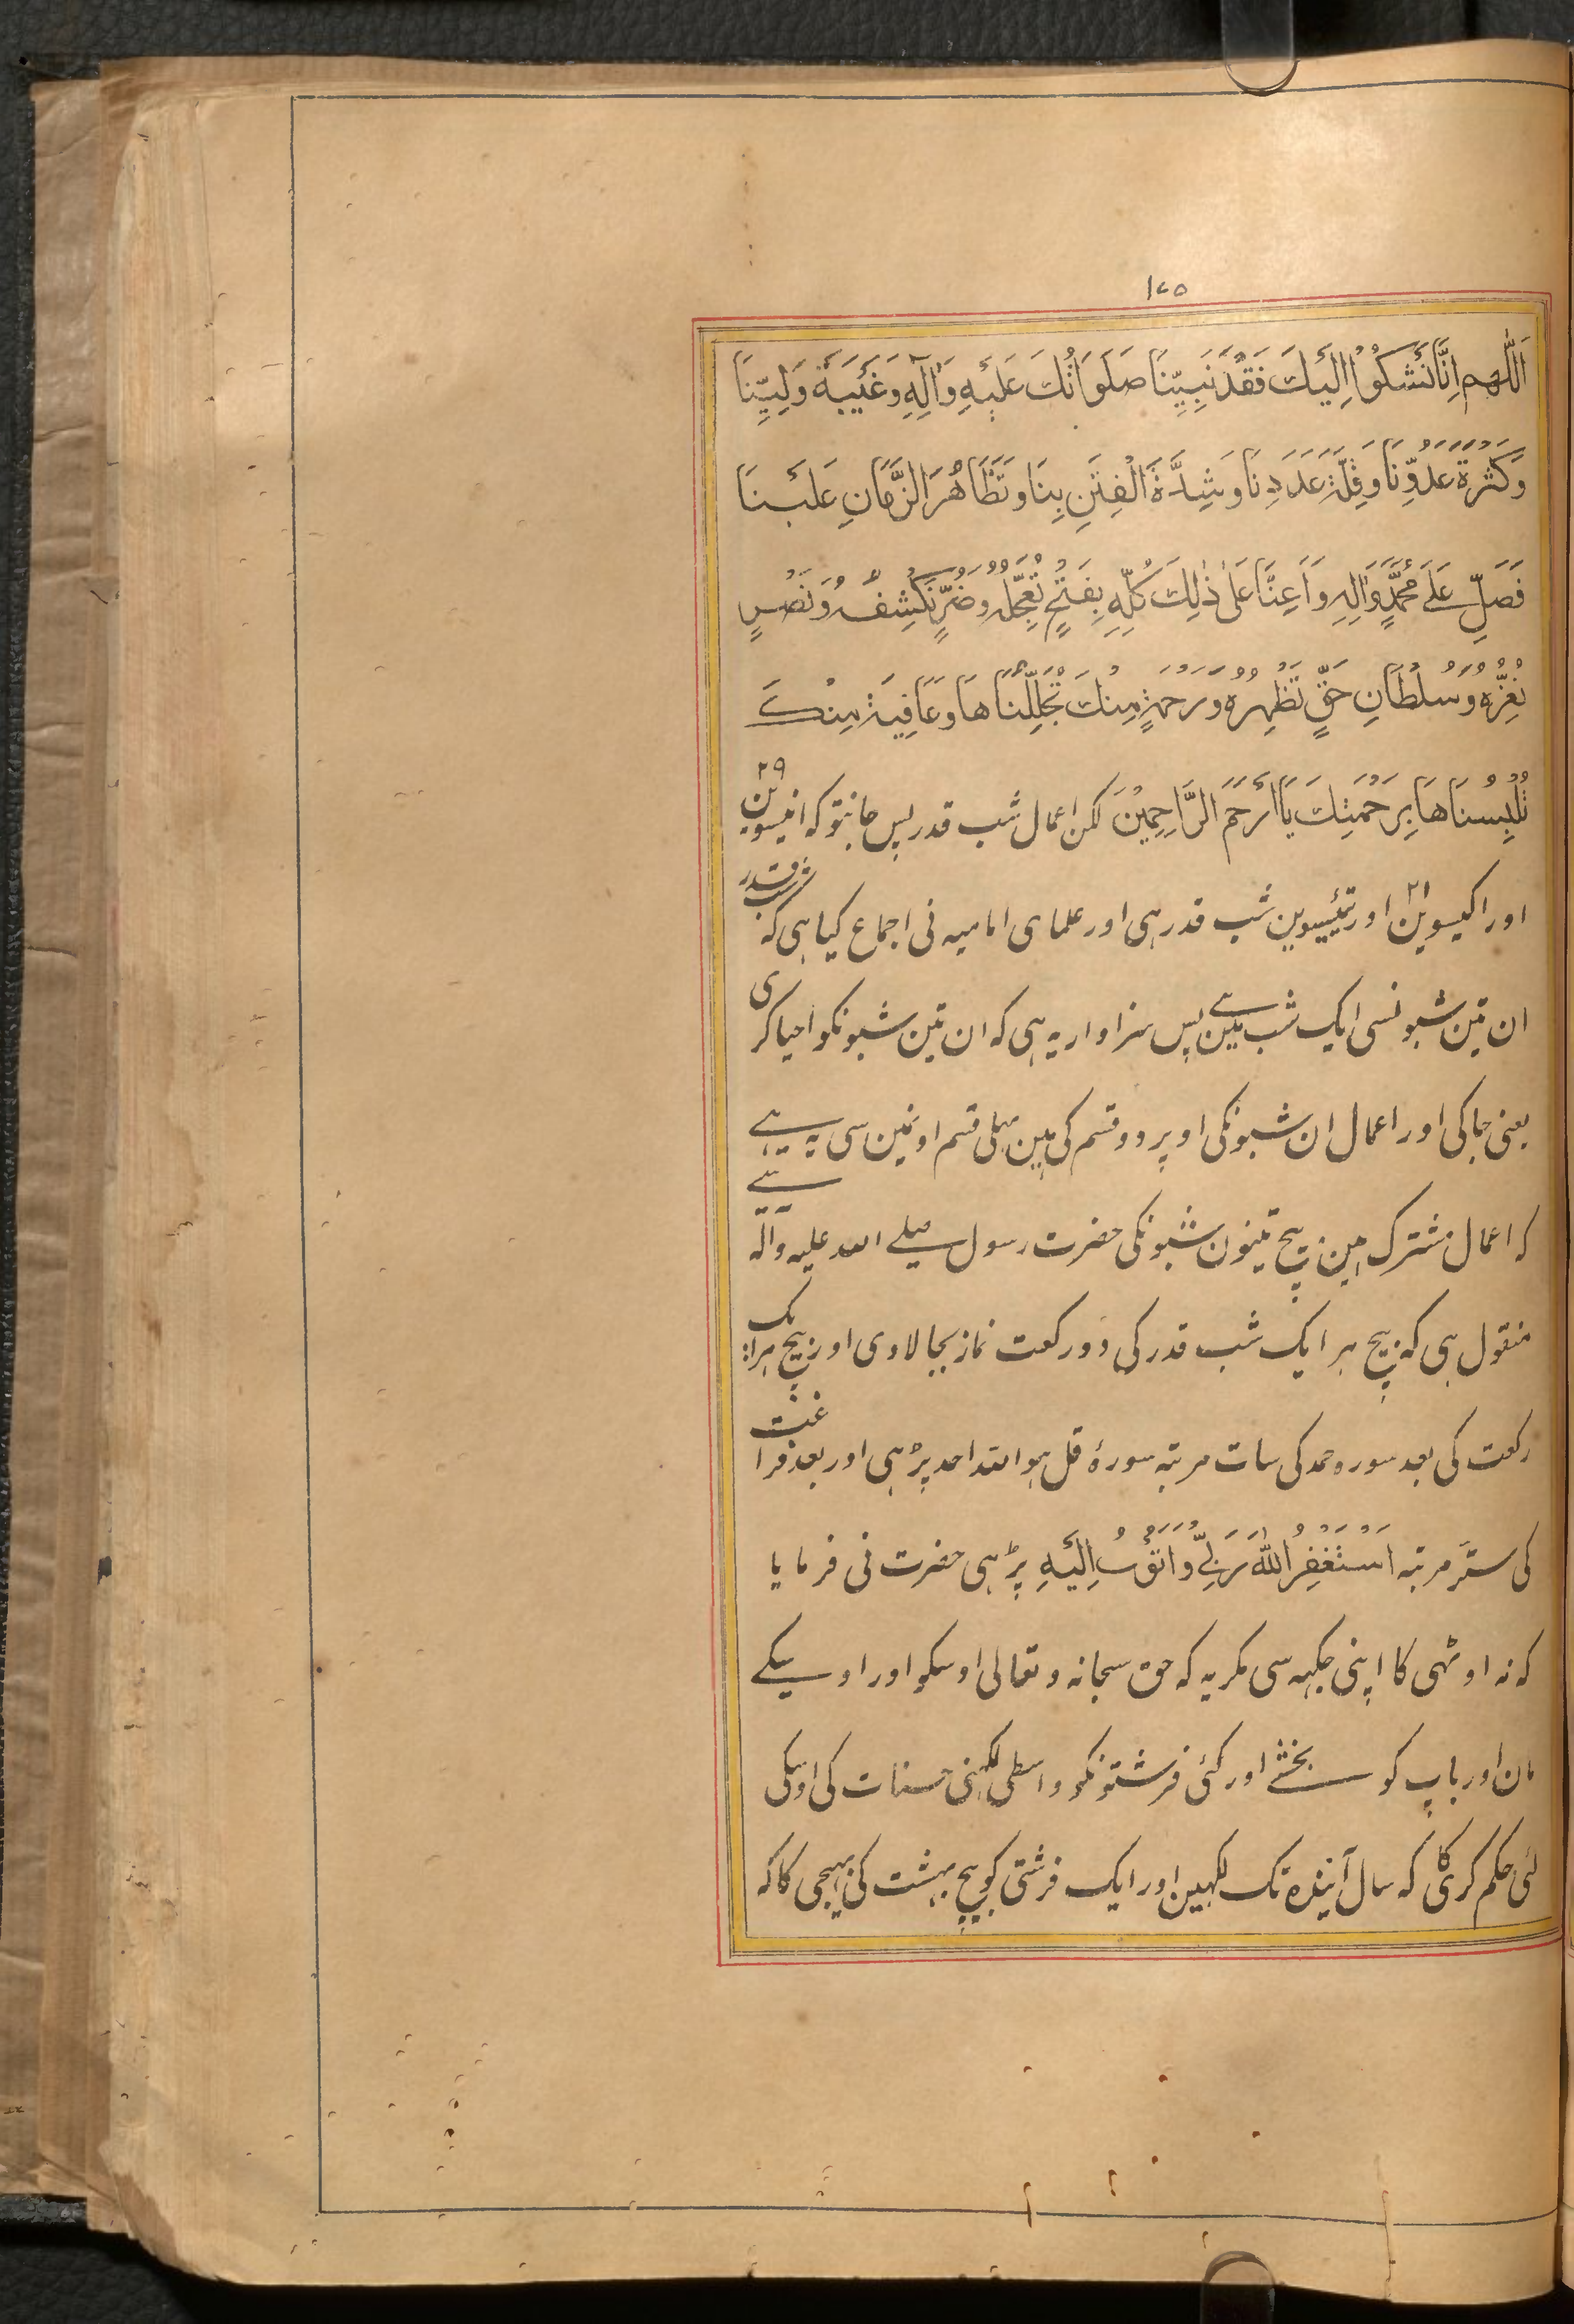 ۱۷۵
اَللّٰهُمَّ اِنَّا نَشْكُوْا اِلَيْكَ فَقْدَ نَبِيِّنَا صَلَوَاتُكَ عَلَيْهِ وَاٰلِهِ وَغَيْبَةَ وَلِيِّنَا
وَكَثْرَةَ عَدُوِّنَا وَقِلَّةَ عَدَدِنَا وَشِدَّةَ الْفِتَنِ بِنَا وَتَظَاهُرَ الزَّمَانِ عَلَيْنَا
فَصَلِّ عَلٰى مُحَمَّدٍ وَاٰلِهِ وَاَعِنَّا عَلٰى ذٰلِكَ كُلِّهِ بِفَتْحٍ تُعَجِّلُهُ وَضُرٍّ تَكْشِفُهُ وَنَصْرٍ
تُعِزُّهُ وَسُلْطَانِ حَقٍّ تُظْهِرُهُ وَرَحْمَةٍ مِنْكَ تُجَلِّلُنَاهَا وَعَافِيَةٍ مِنْكَ
تُلْبِسُنَاهَا بِرَحْمَتِكَ يَا اَرْحَمَ الرَّاحِمِيْنَ لکن اعمال شب قدر پس جانتو کہ انیسوین ۲۹
اور اکیسوین ۲۱ اور تیئیسوین شب قدر ہی اور علمای امامیہ نی اجماع کیا ہی کہ شب قدر
ان تین شبونسی ایک شب ہے مین پس سزاوار یہ ہی کہ ان تین شبونکو احیا کری
یعنی جاکی اور اعمال ان شبونکی اوپر دو قسم کی ہین پہلی قسم اونمین سی یہ ہے
کہ اعمال مشترک ہین بیچ تینون شبونکی حضرت رسول صلے اللہ علیہ وآلہ سے
منقول ہی کہ بیچ ہر ایک شب قدر کی دو رکعت نماز بجا لاوی اور بیچ ہر ایک
رکعت کی بعد سورہ حمد کی سات مرتبہ سورۂ قل ہو اللہ احد پڑہی اور بعد فراغت
کی ستر مرتبہ اَسْتَغْفِرُ اللّٰهَ رَبِّيْ وَاَتُوْبُ اِلَيْهِ پڑہی حضرت نی فرمایا
کہ نہ اوٹہی کا اپنی جکہہ سی مکر یہ کہ حق سبحانہ و تعالی اوسکو اور اوسیکے
مان اور باپ کو بخشے اور کئی فرشتونکو واسطی لکہنی حسنات کی اوسکی
لئی حکم کری کا کہ سال آیندہ تک لکہین اور ایک فرشتی کو بیچ بہشت کی بہیجی کا کہ